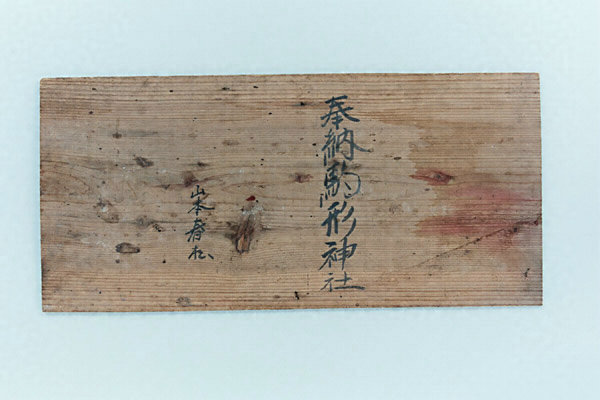 奉納駒形神社
山本春松